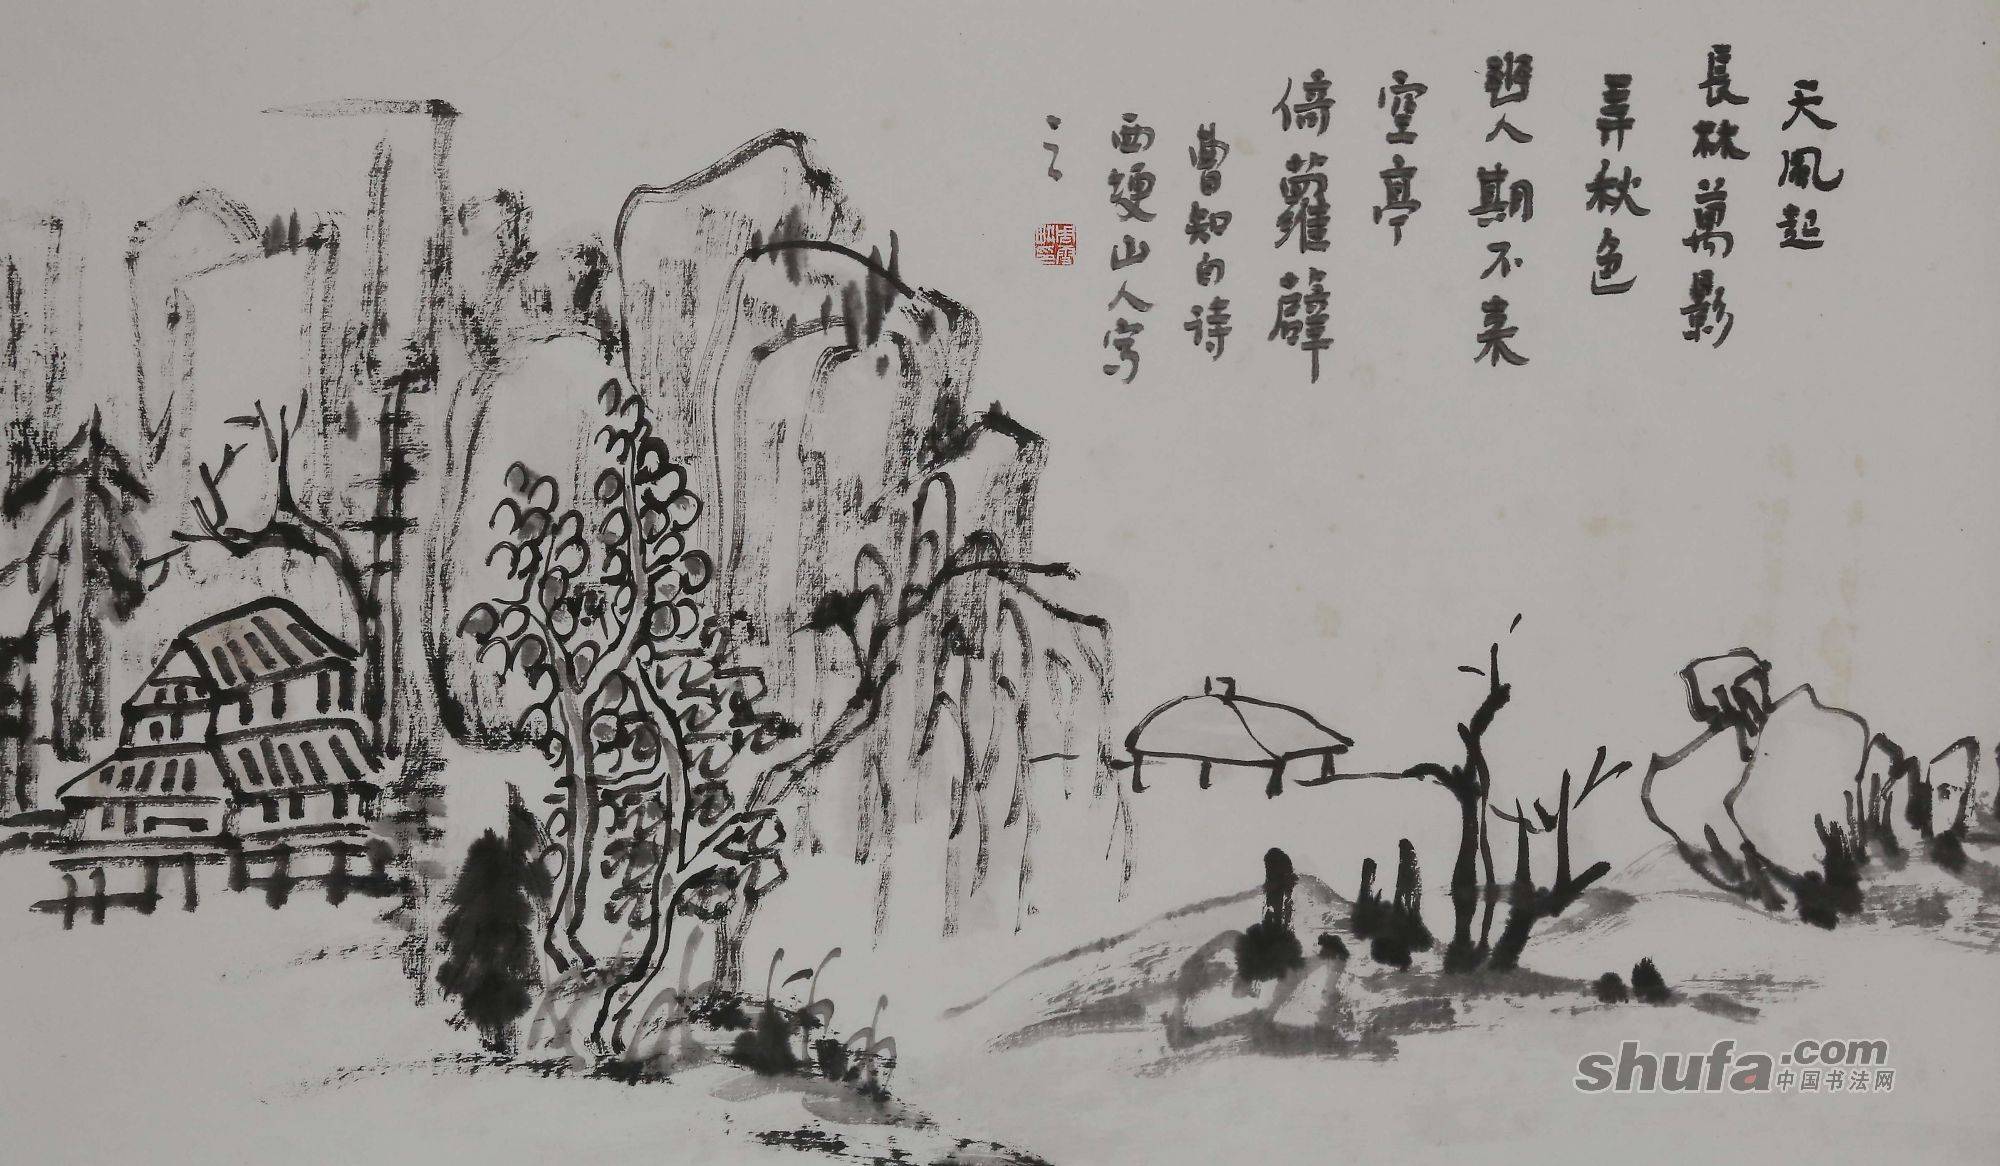 天風起
長林萬影
弄秋色
幽人期不来
空亭
倚蘿薜
曹知白詩
西埂山人寫
之
shufa.com
中国书法网